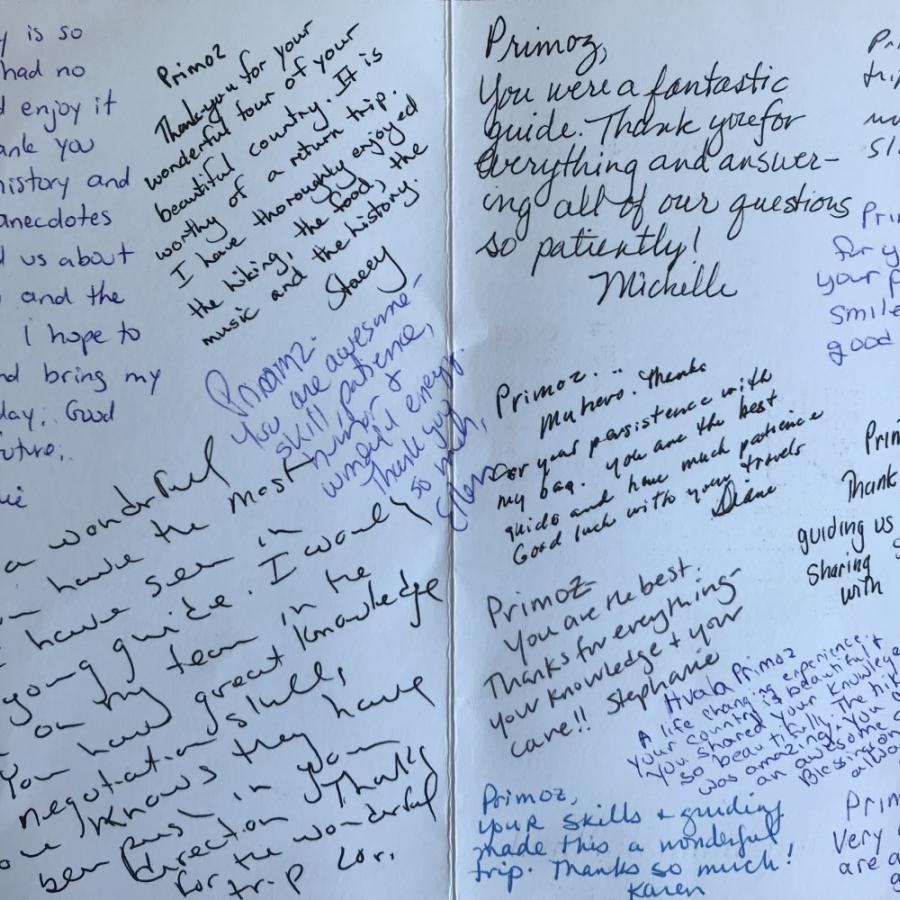 y is so
had no
d enjoy it
ank you
history and
anecdotes
d us about
and the
I hope to
nd bring my
day. Good
uture,
Primoz
Thank you for your
wonderful tour of your
beautiful country. It is
worthy of a return trip.
I have thoroughly enjoyed
the hiking, the food, the
music and the history.
Stacey
Primoz.
You are awesome-
skill, patience,
humor &
wonderful energy.
Thank you
so much,
a wonderful
have the most
have seen in
young guide. I would
on my team in the
You have great knowledge
negotiation skills,
knows they have
been push in your
direction Thanks
for the wonderful
trip Lori
Primoz,
You were a fantastic
guide. Thank you for
everything and answer-
ing all of our questions
so patiently!
Michelle
Primoz...
My hero. Thanks
for your persistence with
my bag. You are the best
guide and have much patience
Good luck with your travels
Diane
Primoz
You are the best.
Thanks for everything-
your knowledge + your
care!! Stephanie
Hvala Primoz
A life changing experience.
Your country is beautiful &
you shared your knowledge
so beautifully. The hik
was amazing. You
an awesome
Blessings
alwa
Primoz,
your skills + guiding
made this a wonderful
trip. Thanks so much!
Karen
Pri
trip
Sl
Pri
for y
your p
smile
good
Prim
Thank
guiding us
sharing
with
Prim
Very
are a